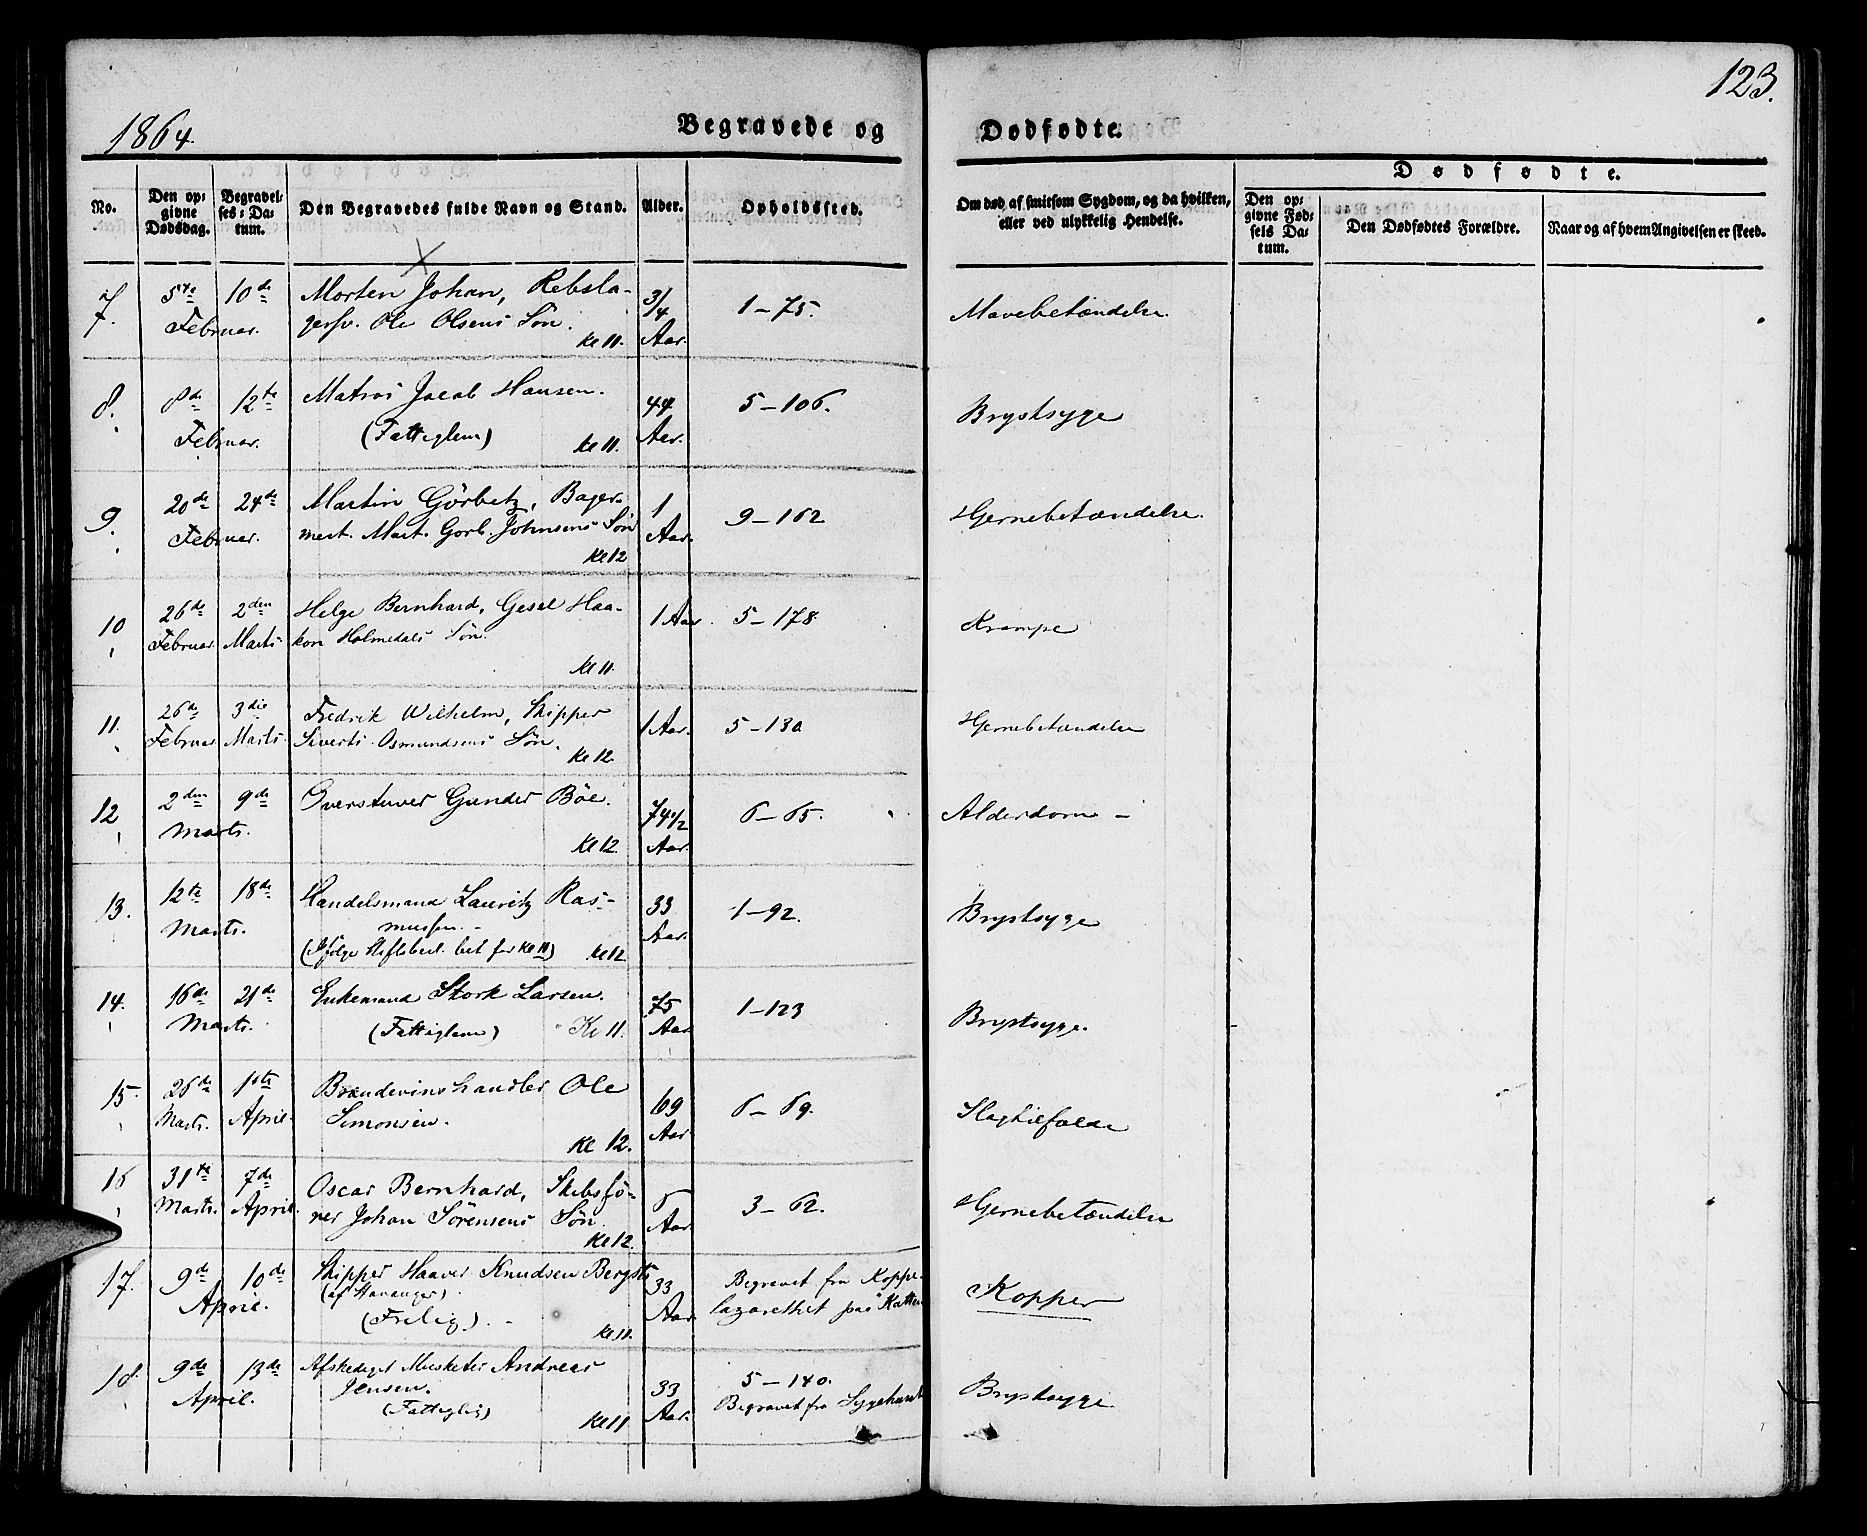 1864.
Begravede og Dødfødte.
123.
No.
Den opgivne Dødsdag.
Begravelses-Datum.
Den Begravedes fulde Navn og Stand.
Alder.
Opholdssted.
Om død af smitsom Sygdom, og da hvilken, eller ved ulykkelig Hendelse.
Dødfødte.
Den opgivne Fødsels Datum.
Den Dødfødtes Forældre.
Naar og af hvem Angivelsen er skeed.
7. 5te 10de Morten Johan, Rebsla- 3/4 1-75. Mavebetændelse.
Februar. gersv. Ole Olsens Søn. Kl 11. Aar.
8. 8de 12te Matros Jacob Hansen. 44 5-106. Brystsyge
Februar. (Fattiglem) Kl 11. Aar.
9. 20de 24de Martin Görbetz, Bager- 1 9-162 Hjernebetændelse.
Februar. mest. Mart. Gorb. Johnsens Søn Aar.
Kl 12
10 26de 2den Helge Bernhard, Gesel Haa- 1 Aar 5-178. Krampe
Februar. Marts kon Holmedals Søn.
Kl 11.
11. 26de 3die Fredrik Wilhelm, Skipper 1 Aar. 5-130 Hjernebetændelse
Februar Marts. Siverts Osmundsens Søn.
Kl 12.
12 2den 9de Gunder Böe. 74 1/2 6-65. Alderdom -
Marts. Kl 12. Aar.
13. 12te 18de Handelsmand Lauritz Ras- 33 1-92. Brystsyge
Marts. mussen. - Aar.
(Ifølge bet for Kl 11) Kl 12
14. 16de 21de Enkemand Stork Larsen. 75 1-123 Brystsyge.
Marts. (Fattiglem) Kl 11. Aar
15. 26de 1ste Brændevinshandler Ole 69 6-69. Slagtilfælde
Marts. April. Simonsen. Aar
Kl 12.
16 31te 7de Oscar Bernhard, Skibsfö- 6 3-62. Hjernebetændelse
Marts. April. rer Johan Sörensens Søn. Aar
Kl 12.
17. 9de 10de Skipper Haaver Knudsen 33 Begravet fra Koppe- Kopper
April. (af Stavanger). Aar. lazarethet paa
(Frilig). - Kl 11.
18. 9de 13de Afskediget Musketer Andreas 33 5-140. Brystsyge
April. Jensen. Aar. Begravet fra Sygehuset
(Fattiglig) Kl 11